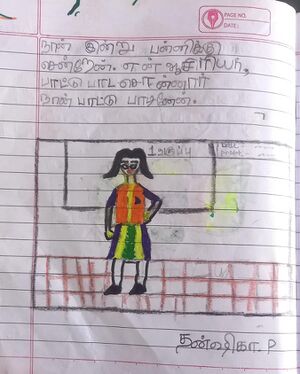 PAGE NO.
DATE:
நான் இன்று பள்ளிக்கு
சென்றேன். என் ஆசிரியர்,
பாட்டு பாட சொன்னார்
நான் பாட்டு பாடினேன்.
1 வகுப்பு
தன்ஷிகா. P